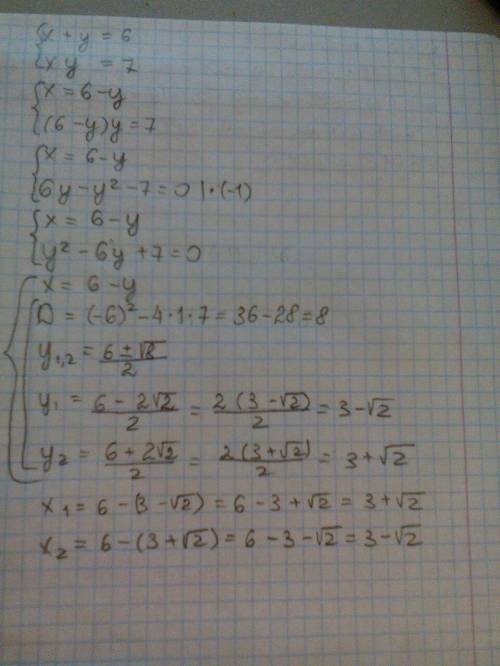 {x + y = 6
{xy = 7
{x = 6 - y
{(6 - y)y = 7
{x = 6 - y
{6y - y² - 7 = 0 | · (-1)
{x = 6 - y
{y² - 6y + 7 = 0
{x = 6 - y
D = (-6)² - 4 · 1 · 7 = 36 - 28 = 8
y₁,₂ = (6 ± √8)/2
y₁ = (6 - 2√2)/2 = 2(3 - √2)/2 = 3 - √2
y₂ = (6 + 2√2)/2 = 2(3 + √2)/2 = 3 + √2
x₁ = 6 - (3 - √2) = 6 - 3 + √2 = 3 + √2
x₂ = 6 - (3 + √2) = 6 - 3 - √2 = 3 - √2